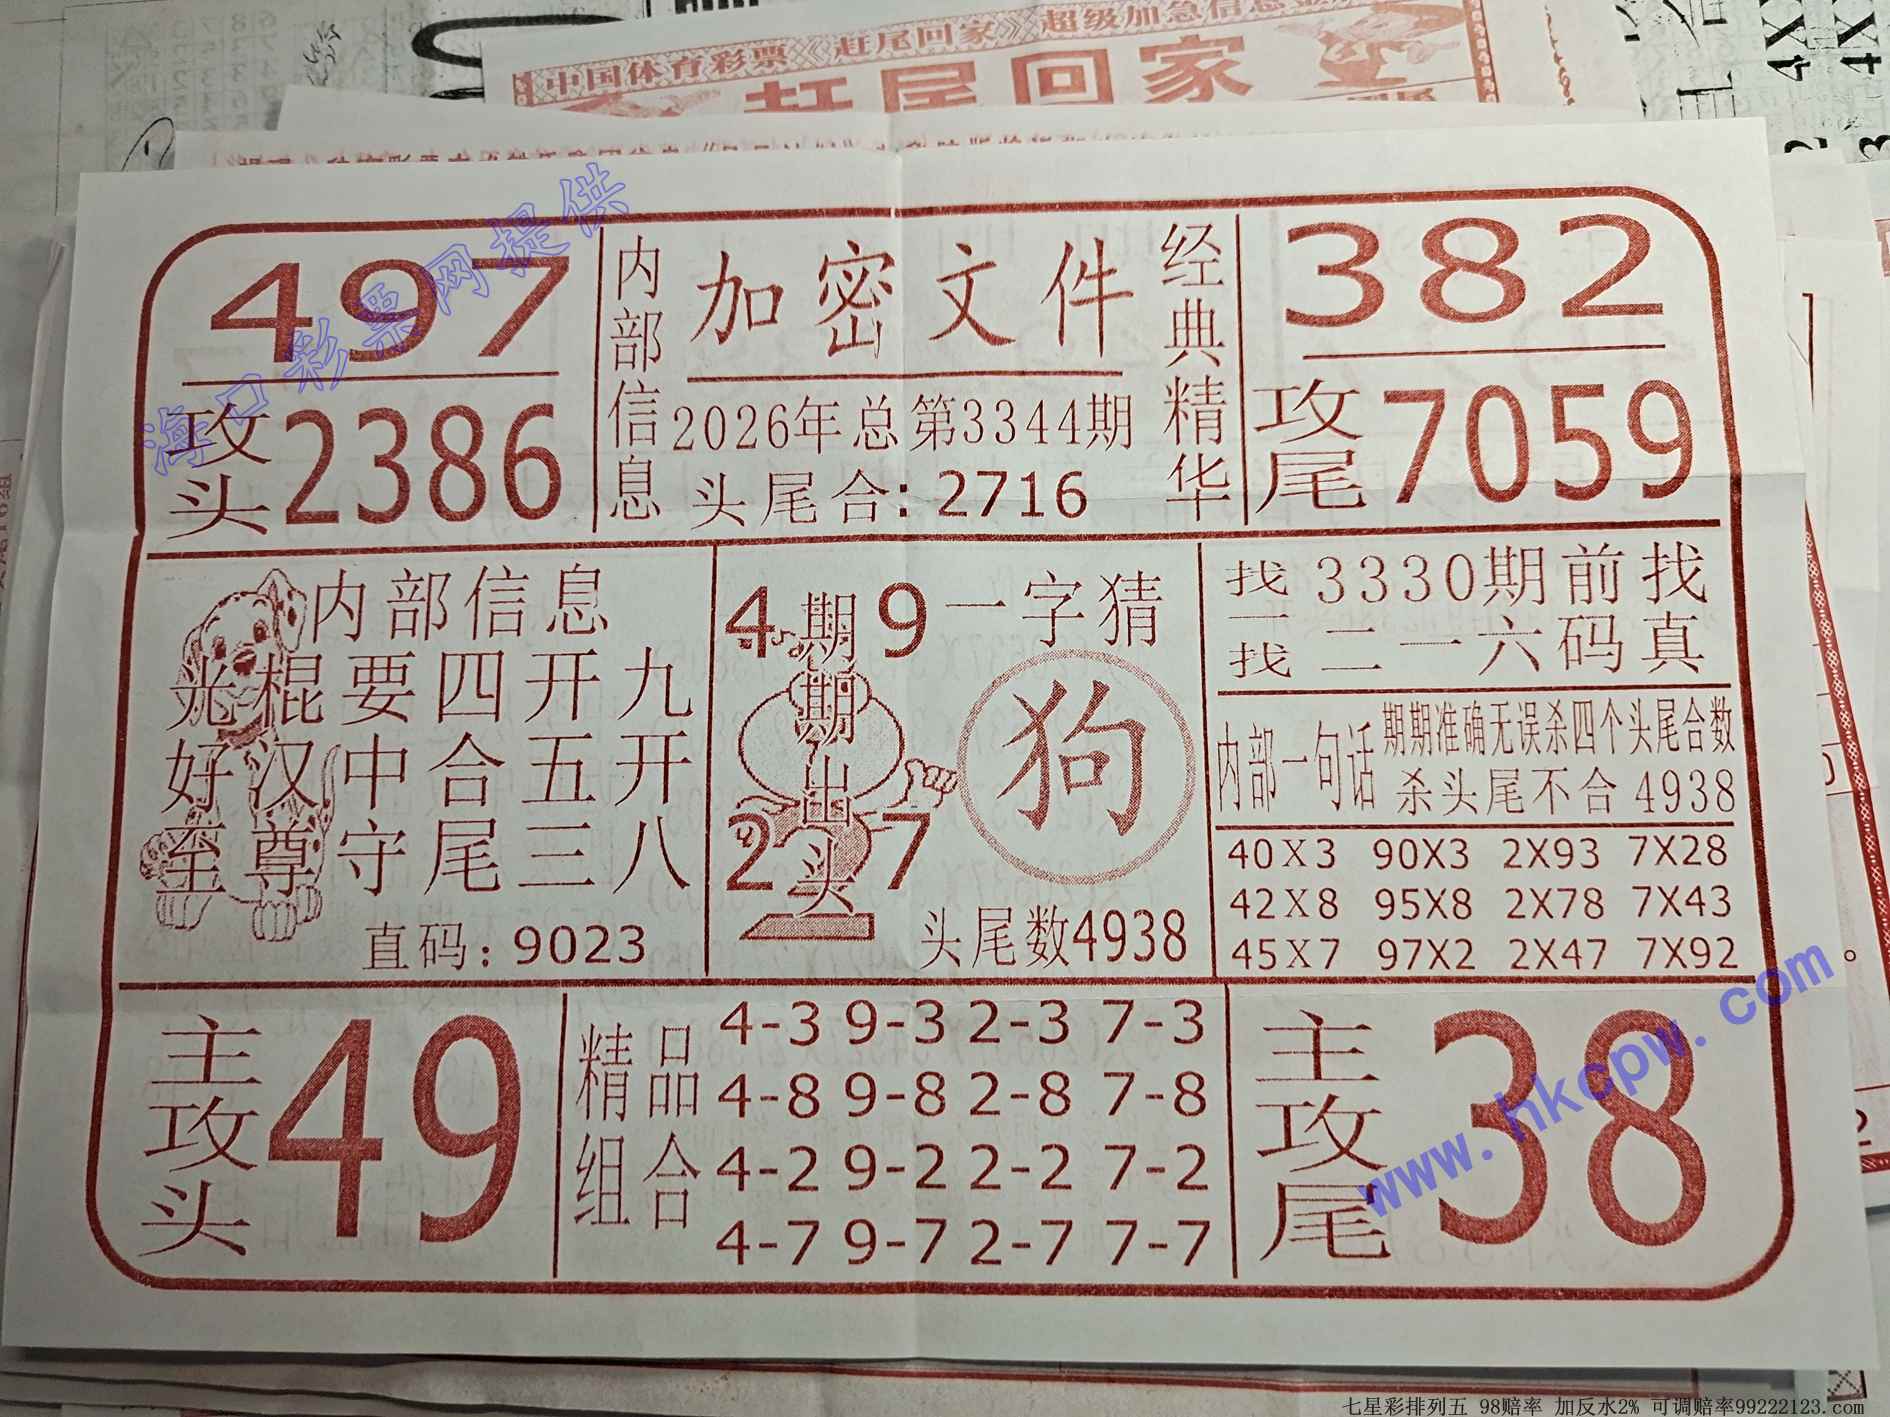 中国体育彩票《赶尾回家》超级加急信息
赶尾回家
海口彩票网提供
497
攻头2386
内部信息
加密文件
2026年总第3344期
头尾合:2716
经典精华
382
攻尾7059
内部信息
光棍要四开九
好汉中合五开
至尊守尾三八
直码:9023
4 9
期期出头
2 7
一字猜
狗
头尾数4938
找一找
3330期前找
二一六码真
内部一句话
期期准确无误杀四个头尾合数
杀头尾不合4938
40X3 90X3 2X93 7X28
42X8 95X8 2X78 7X43
45X7 97X2 2X47 7X92
主攻头
49
精品组合
4-3 9-3 2-3 7-3
4-8 9-8 2-8 7-8
4-2 9-2 2-2 7-2
4-7 9-7 2-7 7-7
主攻尾
38
www.hkcpw.com
七星彩排列五 98赔率 加反水2% 可调赔率99222123.com